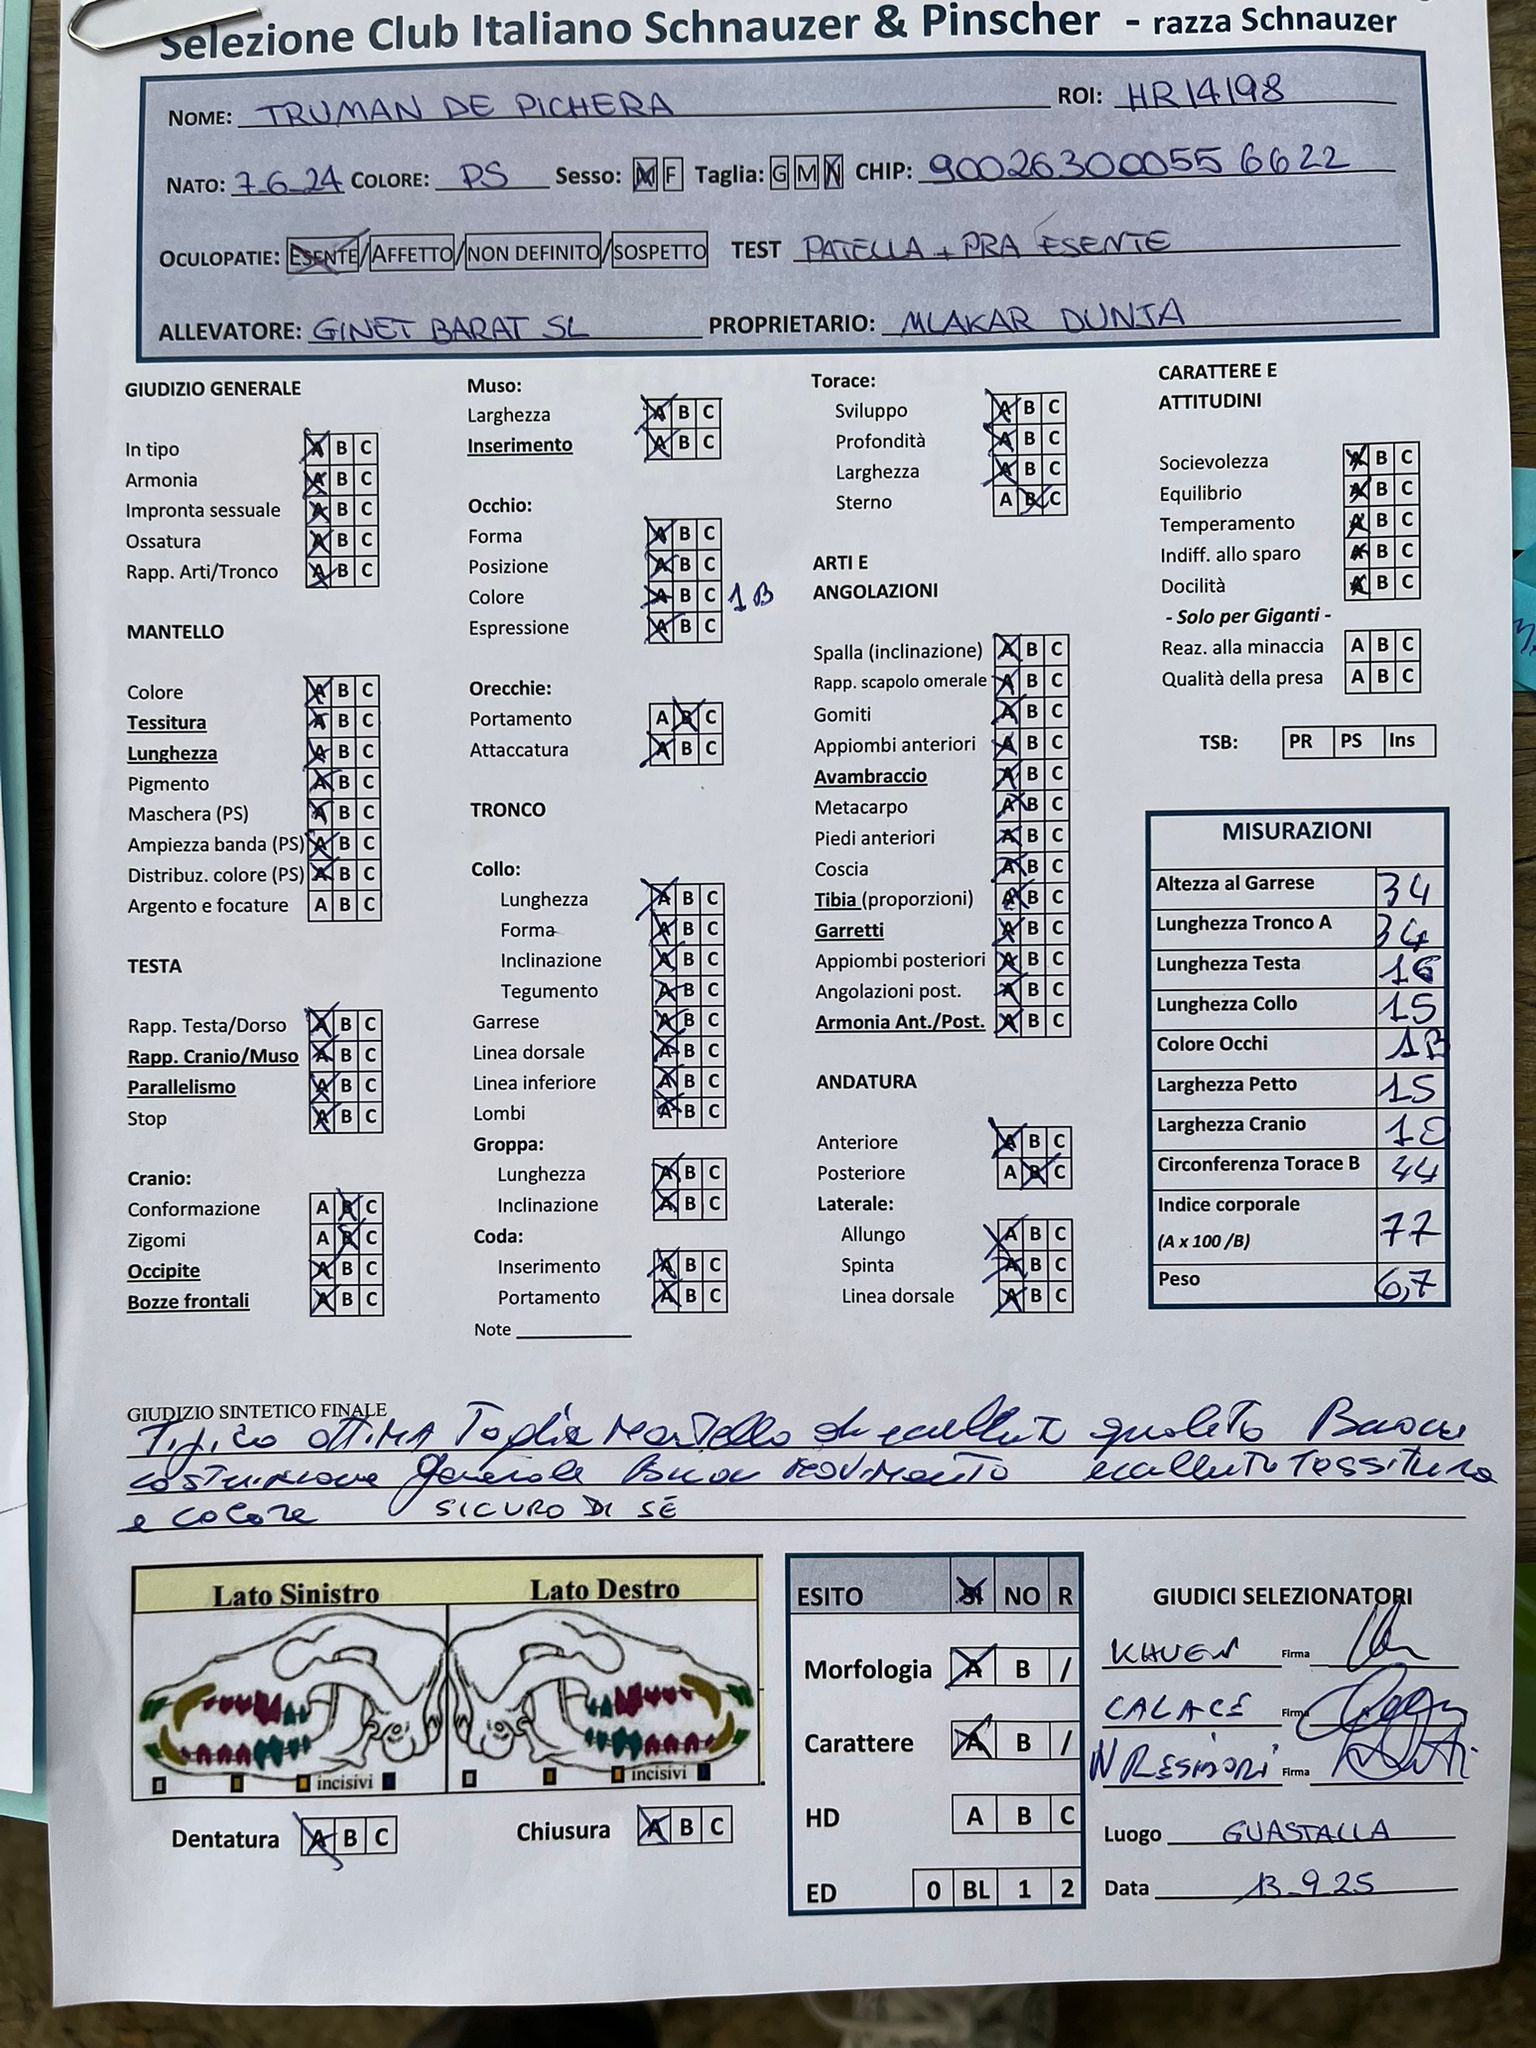 Selezione Club Italiano Schnauzer & Pinscher - razza Schnauzer
NOME: TRUMAN DE PICHERA ROI: HR14198
NATO: 7-6-24 COLORE: PS Sesso: M F Taglia: G M N CHIP: 900263000556622
OCULOPATIE: ESENTE/AFFETTO/NON DEFINITO/SOSPETTO TEST PATELLA + PRA ESENTE
ALLEVATORE: GINET BARAT SL PROPRIETARIO: MLAKAR DUNJA
GIUDIZIO GENERALE
In tipo A B C
Armonia A B C
Impronta sessuale A B C
Ossatura A B C
Rapp. Arti/Tronco A B C
MANTELLO
Colore A B C
Tessitura A B C
Lunghezza A B C
Pigmento A B C
Maschera (PS) A B C
Ampiezza banda (PS) A B C
Distribuz. colore (PS) A B C
Argento e focature A B C
TESTA
Rapp. Testa/Dorso A B C
Rapp. Cranio/Muso A B C
Parallelismo A B C
Stop A B C
Cranio:
Conformazione A B C
Zigomi A B C
Occipite A B C
Bozze frontali A B C
Muso:
Larghezza A B C
Inserimento A B C
Occhio:
Forma A B C
Posizione A B C
Colore A B C 1B
Espressione A B C
Orecchie:
Portamento A B C
Attaccatura A B C
TRONCO
Collo:
Lunghezza A B C
Forma A B C
Inclinazione A B C
Tegumento A B C
Garrese A B C
Linea dorsale A B C
Linea inferiore A B C
Lombi A B C
Groppa:
Lunghezza A B C
Inclinazione A B C
Coda:
Inserimento A B C
Portamento A B C
Note
Torace:
Sviluppo A B C
Profondità A B C
Larghezza A B C
Sterno A B C
ARTI E
ANGOLAZIONI
Spalla (inclinazione) A B C
Rapp. scapolo omerale A B C
Gomiti A B C
Appiombi anteriori A B C
Avambraccio A B C
Metacarpo A B C
Piedi anteriori A B C
Coscia A B C
Tibia (proporzioni) A B C
Garretti A B C
Appiombi posteriori A B C
Angolazioni post. A B C
Armonia Ant./Post. A B C
ANDATURA
Anteriore A B C
Posteriore A B C
Laterale:
Allungo A B C
Spinta A B C
Linea dorsale A B C
CARATTERE E
ATTITUDINI
Socievolezza A B C
Equilibrio A B C
Temperamento A B C
Indiff. allo sparo A B C
Docilità A B C
- Solo per Giganti -
Reaz. alla minaccia A B C
Qualità della presa A B C
TSB: PR PS Ins
MISURAZIONI
Altezza al Garrese 34
Lunghezza Tronco A 34
Lunghezza Testa 16
Lunghezza Collo 15
Colore Occhi 1B
Larghezza Petto 15
Larghezza Cranio 10
Circonferenza Torace B 44
Indice corporale
(A x 100 /B) 77
Peso 6,7
GIUDIZIO SINTETICO FINALE
Tipico OTTIMA Taglia Mantello di eccellente qualità Buona
costruzione generale Buon MOVIMENTO eccellente Tessitura
e COLORE SICURO DI SÉ
Lato Sinistro Lato Destro
incisivi incisivi
Dentatura A B C Chiusura A B C
ESITO SI NO R
Morfologia A B /
Carattere A B /
HD A B C
ED 0 BL 1 2
GIUDICI SELEZIONATORI
KHUEN Firma
CALACE Firma
Firma
Luogo GUASTALLA
Data 13-9-25